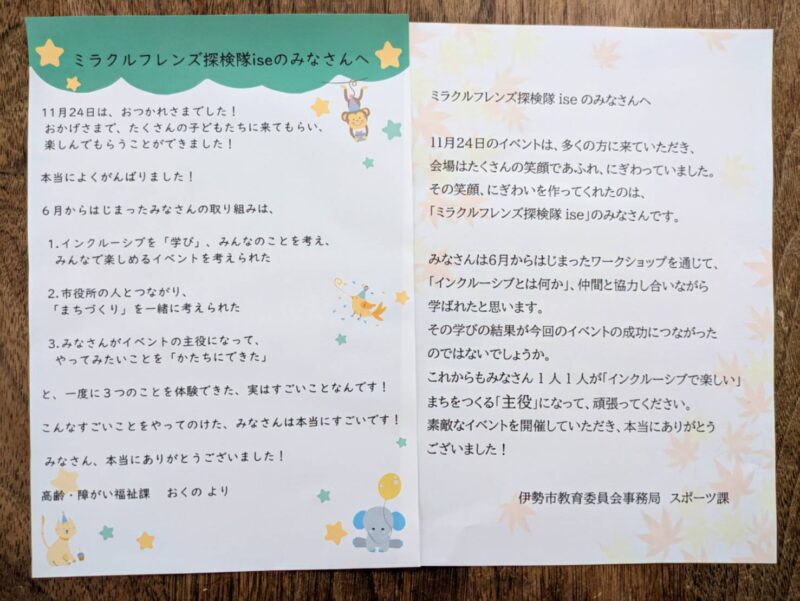 ミラクルフレンズ探検隊iseのみなさんへ
11月24日は、おつかれさまでした！
おかげさまで、たくさんの子どもたちに来てもらい、
楽しんでもらうことができました！
本当によくがんばりました！
６月からはじまったみなさんの取り組みは、
1.インクルーシブを「学び」、みんなのことを考え、
みんなで楽しめるイベントを考えられた
2.市役所の人とつながり、
「まちづくり」を一緒に考えられた
3.みなさんがイベントの主役になって、
やってみたいことを「かたちにできた」
と、一度に３つのことを体験できた、実はすごいことなんです！
こんなすごいことをやってのけた、みなさんは本当にすごいです！
みなさん、本当にありがとうございました！
高齢・障がい福祉課　おくの より
ミラクルフレンズ探検隊 ise のみなさんへ
11月24日のイベントは、多くの方に来ていただき、
会場はたくさんの笑顔であふれ、にぎわっていました。
その笑顔、にぎわいを作ってくれたのは、
「ミラクルフレンズ探検隊 ise」のみなさんです。
みなさんは６月からはじまったワークショップを通じて、
「インクルーシブとは何か」、仲間と協力し合いながら
学ばれたと思います。
その学びの結果が今回のイベントの成功につながった
のではないでしょうか。
これからもみなさん１人１人が「インクルーシブで楽しい」
まちをつくる「主役」になって、頑張ってください。
素敵なイベントを開催していただき、本当にありがとう
ございました！
伊勢市教育委員会事務局　スポーツ課